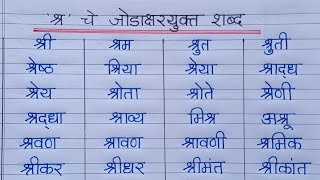 'श्र' चे जोडाक्षरयुक्त शब्द
श्री श्रम श्रुत श्रुती
श्रेष्ठ श्रिया श्रेया श्राद्ध
श्रेय श्रोता श्रोते श्रेणी
श्रद्धा श्राव्य मिश्र अश्रू
श्रवण श्रावण श्रावणी श्रमिक
श्रीकर श्रीधर श्रीमंत श्रीकांत